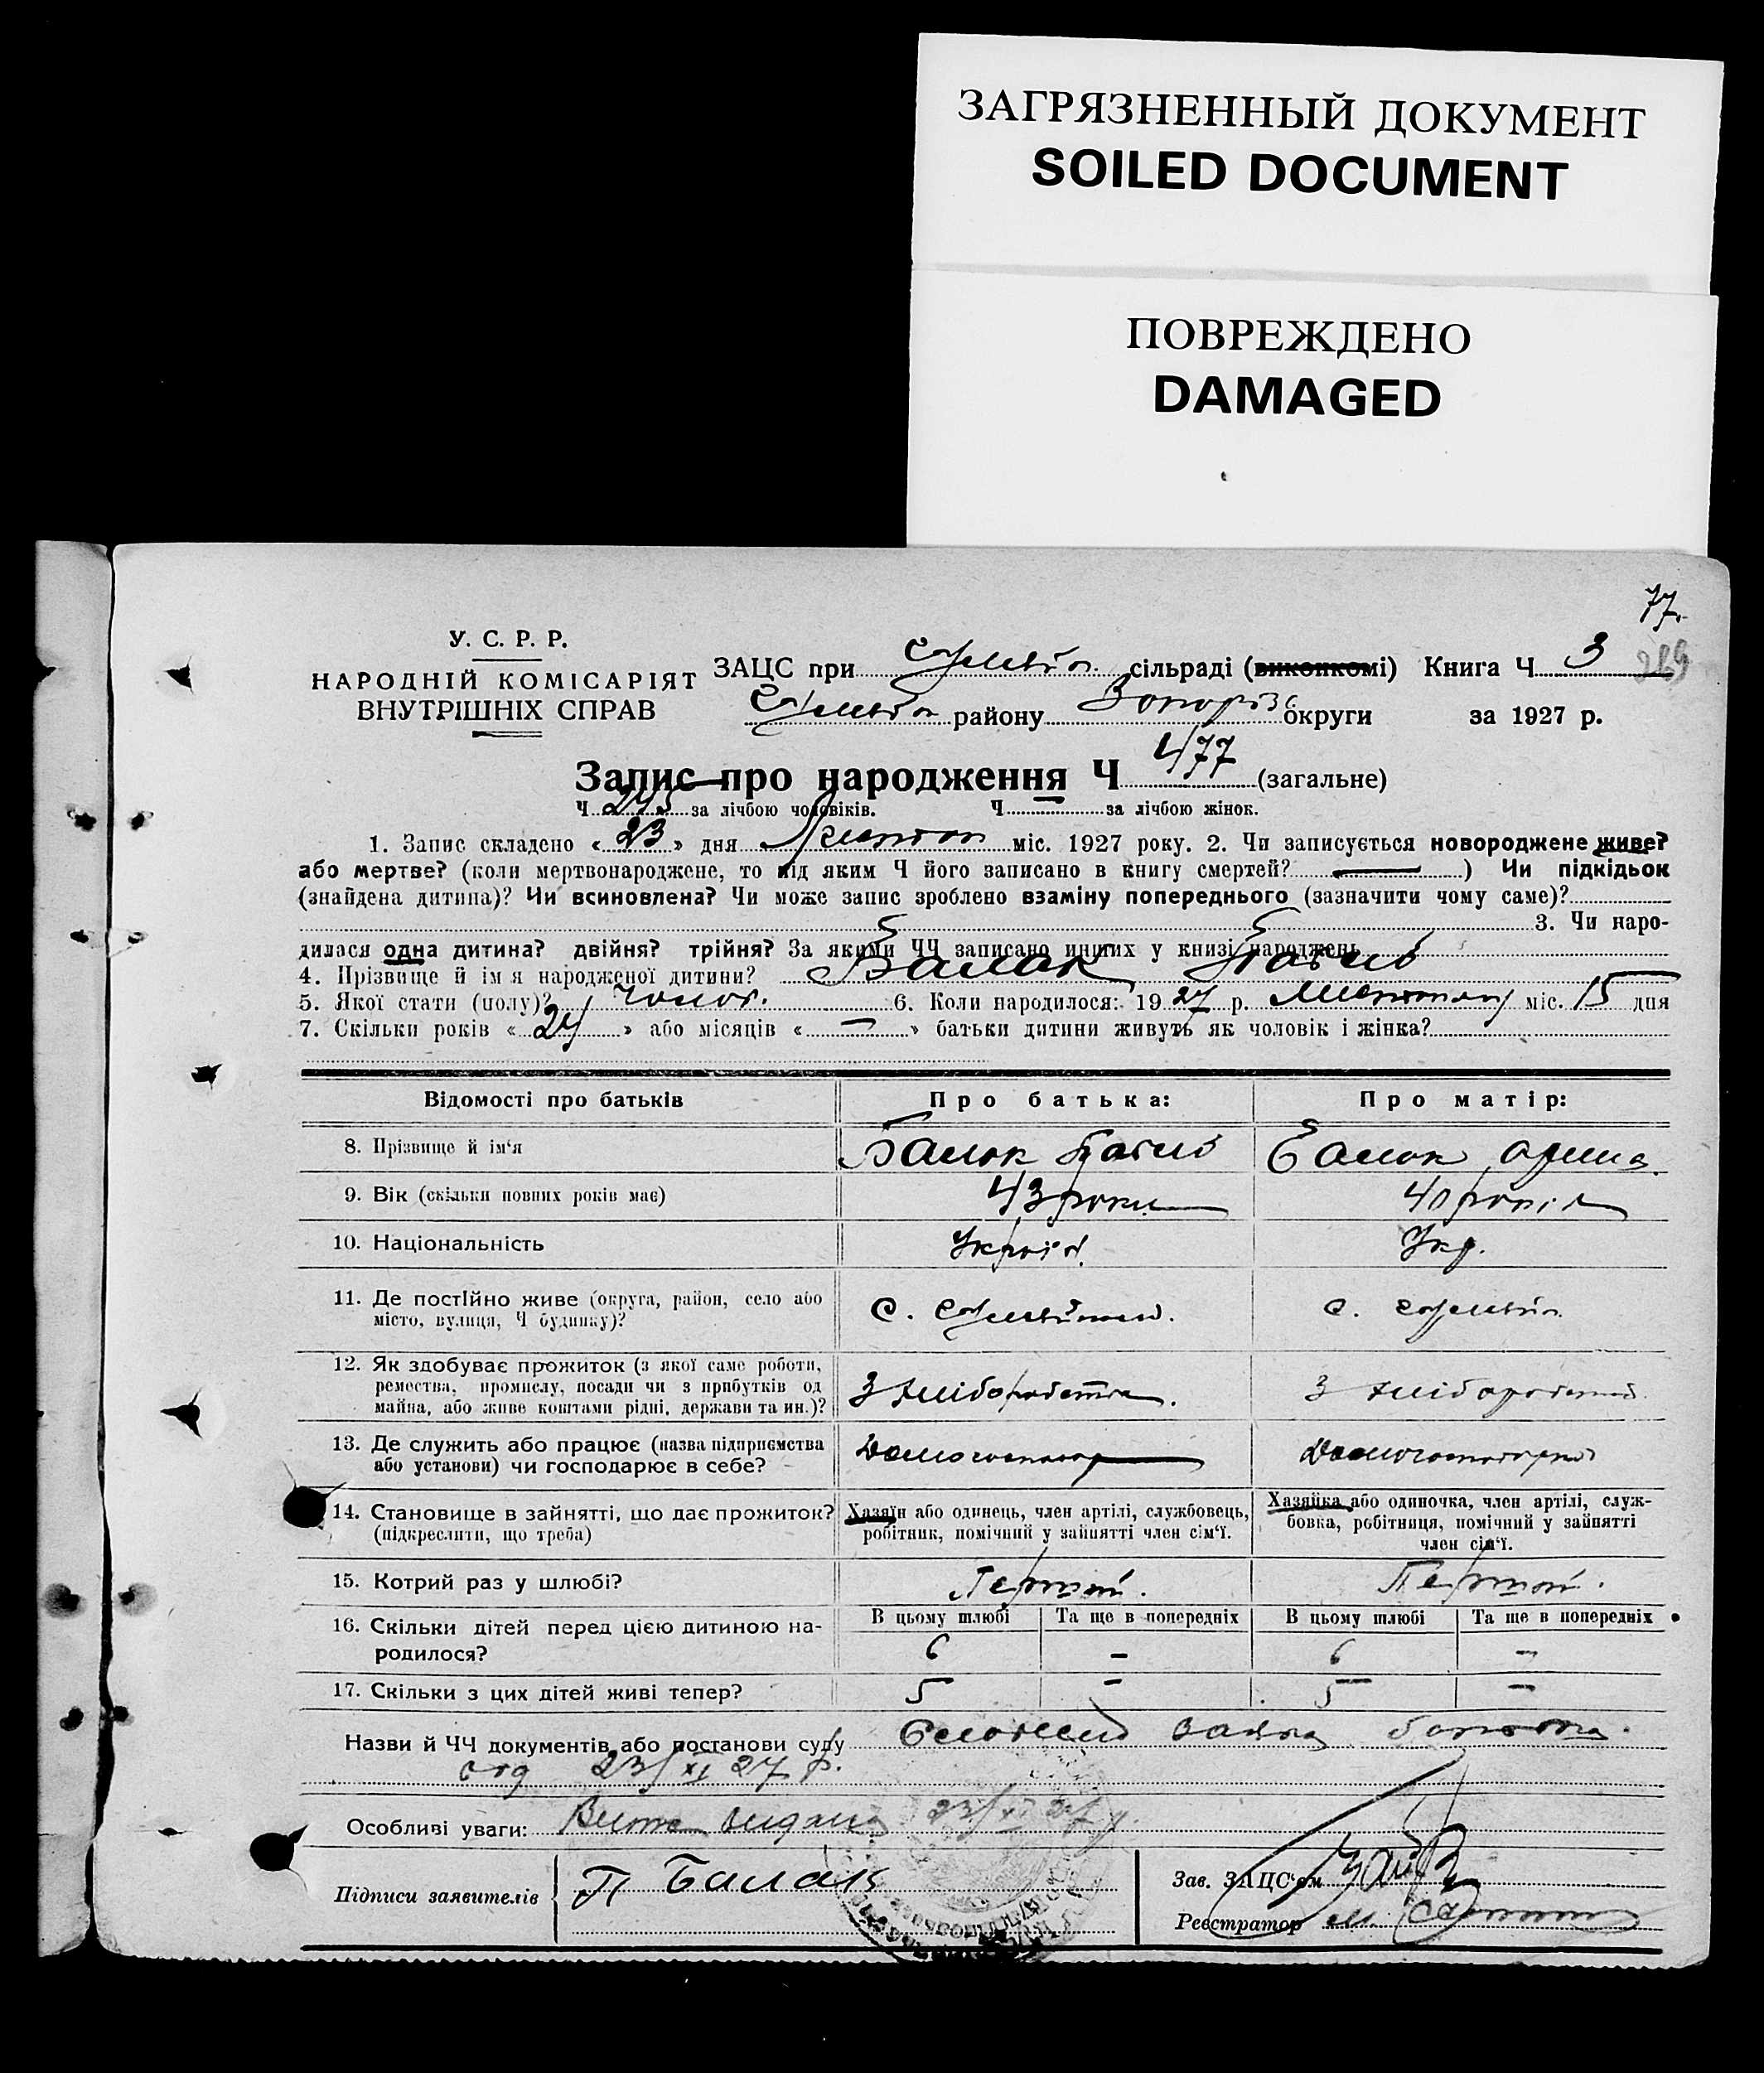 ЗАГРЯЗНЕННЫЙ ДОКУМЕНТ
SOILED DOCUMENT
ПОВРЕЖДЕНО
DAMAGED
77.
269
У. С. Р. Р.
НАРОДНІЙ КОМІСАРІЯТ
ВНУТРІШНІХ СПРАВ
ЗАЦС при сільраді (виконкомі) Книга Ч 3
району Запоріз округи за 1927 р.
Запис про народження Ч 477 (загальне)
Ч 245 за лічбою чоловіків. Ч за лічбою жінок.
1. Запис складено « 23 » дня міс. 1927 року. 2. Чи записується новороджене живе?
або мертве? (коли мертвонароджене, то під яким Ч його записано в книгу смертей? — ) Чи підкідьок
(знайдена дитина)? Чи всиновлена? Чи може запис зроблено взаміну попереднього (зазначити чому саме)?
3. Чи наро-
дилася одна дитина? двійня? трійня? За якими ЧЧ записано инших у книзі народжень
4. Прізвище й ім'я народженої дитини? Балак Павло
5. Якої стати (полу)? чолов. 6. Коли народилося: 1927 р. міс. 15 дня
7. Скільки років « 24 » або місяців « — » батьки дитини живуть як чоловік і жінка?
Відомості про батьків Про батька: Про матір:
8. Прізвище й ім'я Балак Павло Балак Орина
9. Вік (скільки повних років має) 43 роки 40 років
10. Національність Україн. Укр.
11. Де постійно живе (округа, район, село або
місто, вулиця, Ч будинку)? с. с.
12. Як здобуває прожиток (з якої саме роботи,
ремества, промислу, посади чи з прибутків од
майна, або живе коштами рідні, держави та ин.)? З хліборобства. З хліборобства
13. Де служить або працює (назва підприємства
або установи) чи господарює в себе? Домогосподар
14. Становище в зайнятті, що дає прожиток?
(підкреслити, що треба)
Хазяїн або одинець, член артілі, службовець,
робітник, помічний у зайнятті член сім'ї.
Хазяйка або одиночка, член артілі, служ-
бовка, робітниця, помічний у зайнятті
член сім'ї.
15. Котрий раз у шлюбі? Первий. Первий.
16. Скільки дітей перед цією дитиною на-
родилося?
В цьому шлюбі Та ще в попередніх В цьому шлюбі Та ще в попередніх
6 – 6 –
17. Скільки з цих дітей живі тепер? 5 – 5 –
Назви й ЧЧ документів або постанови суду Словесна заява батька.
від 23/XI 27 р.
Особливі уваги: видана 23/XI 27 р.
Підписи заявителів П Балак
Зав. ЗАЦС'ом
Реєстратор